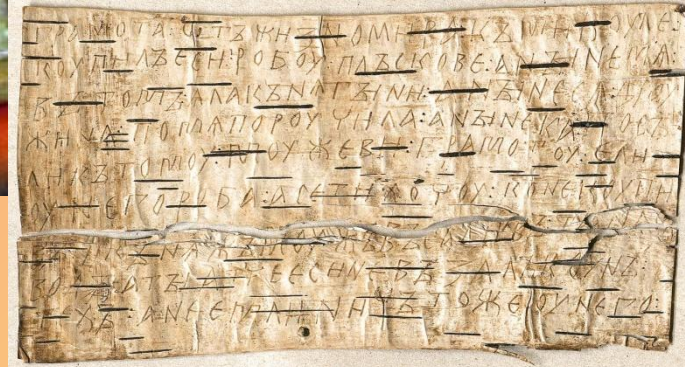 ГРАМОТА:ѠТЪЖИЗНОМИРАКЪМИКОУЛЕ:
КОУПИЛЪЕСИ:РОБОУ:ПЛЪСКОВЕ:АНЫНЕМѦ:
ВЪТОМЪ:ѦЛАКЪНѦГЫНИ:АНЫНЕСѦДРОУ
ЖИНА:ПОМѦПОРОУЧИЛА:АНЫНЕКА:ПОСЪ
ЛИКЪТОМОУ:МОУЖЕВИ:ГРАМОТОУ:ЕЛИ
ОУНЕГОРОБА:АСЕТИХОЧОУ:КОНЕКОУПИ
ВОДЫ:АТЫАТЧЕЕСИНЕВЪЗАЛЪКОУНЪ:
ТЕХЪ:АНЕЕМЛИ:НИЧЪТОЖЕОУНЕГО: